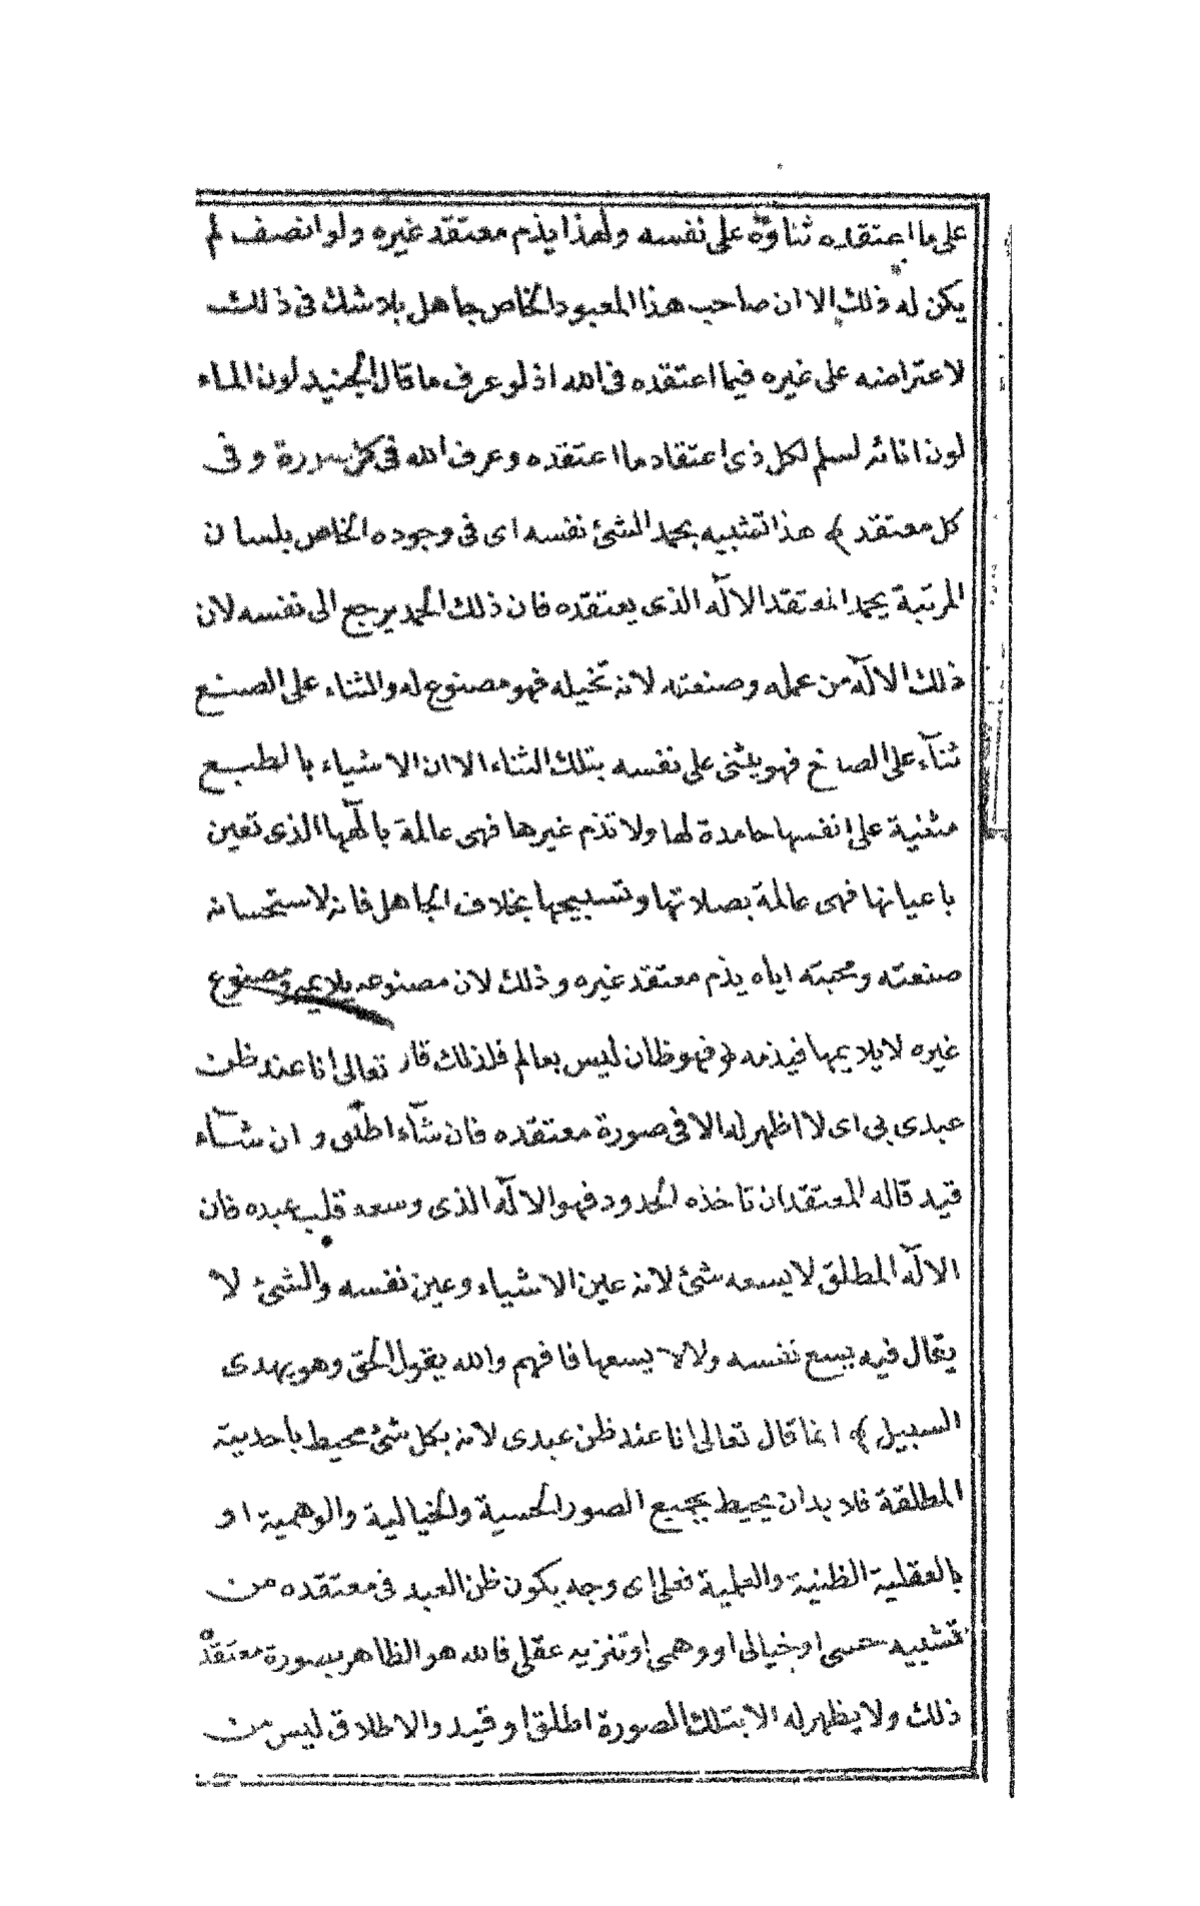 على ما اعتقده ثناؤه على نفسه ولهذا يذم معتقد غيره ولو انصف لم
يكن له ذلك الا ان صاحب هذا المعبود الخاص جاهل بلا شك فى ذلك
لاعتراضه على غيره فيما اعتقده فى الله اذ لو عرف ما قال الجنيد لون الماء
لون انائه لسلم لكل ذى اعتقاد ما اعتقده وعرف الله فى كل صورة وفى
كل معتقد ﴾ هذا تشبيه بحمد الشئ نفسه اى فى وجوده الخاص بلسان
المرتبة يحمد المعتقد الاله الذى يعتقده فان ذلك الحمد يرجع الى نفسه لان
ذلك الاله من عمله وصنعته لانه تخيله فهو مصنوع له والثناء على الصنع
ثنآء على الصانع فهو يثنى على نفسه بتلك الثناء الا ان الاشياء بالطبع
مثنية على انفسها حامدة لها ولا تذم غيرها فهى عالمة بالهها الذى تعين
باعيانها فهى عالمة بصلاتها وتسبيحها بخلاف الجاهل فانه لاستحسانه
صنعته ومحبته اياه يذم معتقد غيره وذلك لان مصنوعه يلايمه ومصنوع
غيره لا يلايمها فيذمه ﴿ فهو ظان ليس بعالم فلذلك قال تعالى انا عند ظن
عبدى بى اى لا اظهر له الا فى صورة معتقده فان شآء اطلق وان شآء
قيد فاله المعتقدات تاخذه الحدود فهو الاله الذى وسعه قلب عبده فان
الاله المطلق لا يسعه شئ لانه عين الاشياء وعين نفسه والشئ لا
يقال فيه يسع نفسه ولا لا يسعها فافهم والله يقول الحق وهو يهدى
السبيل ﴾ انما قال تعالى انا عند ظن عبدى لانه بكل شئ محيط باحديته
المطلقة فلا بد ان يحيط بجميع الصور الحسية والخيالية والوهمية او
بالعقلية الظنية والعلمية فعلى اى وجه يكون ظن العبد فى معتقده من
تشبيه حسى او خيالى او وهمى او تنزيه عقلى فالله هو الظاهر بصورة معتقده
ذلك ولا يظهر له الا بتلك الصورة اطلق او قيد والاطلاق ليس من